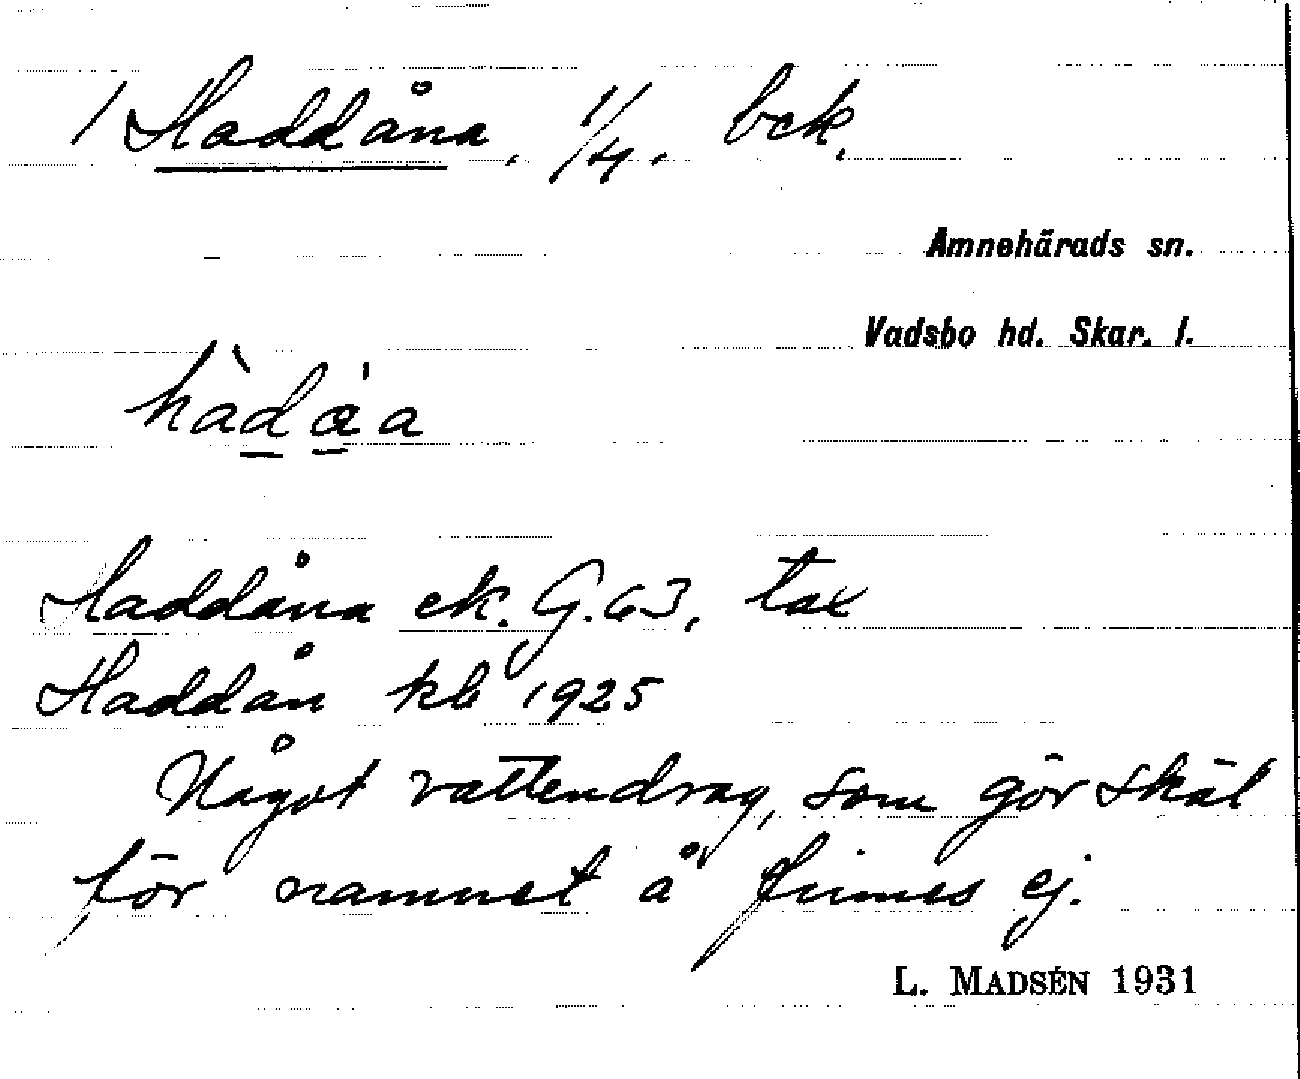 1 Haddåna, 1/4. bck.
Amnehärads sn.
Vadsbo hd. Skar. l.
hàdȧa
Haddåna ek. G. 63, tax
Haddån kb 1925
Något vattendrag, som gör skäl
för namnet å finnes ej.
L. MADSÉN 1931